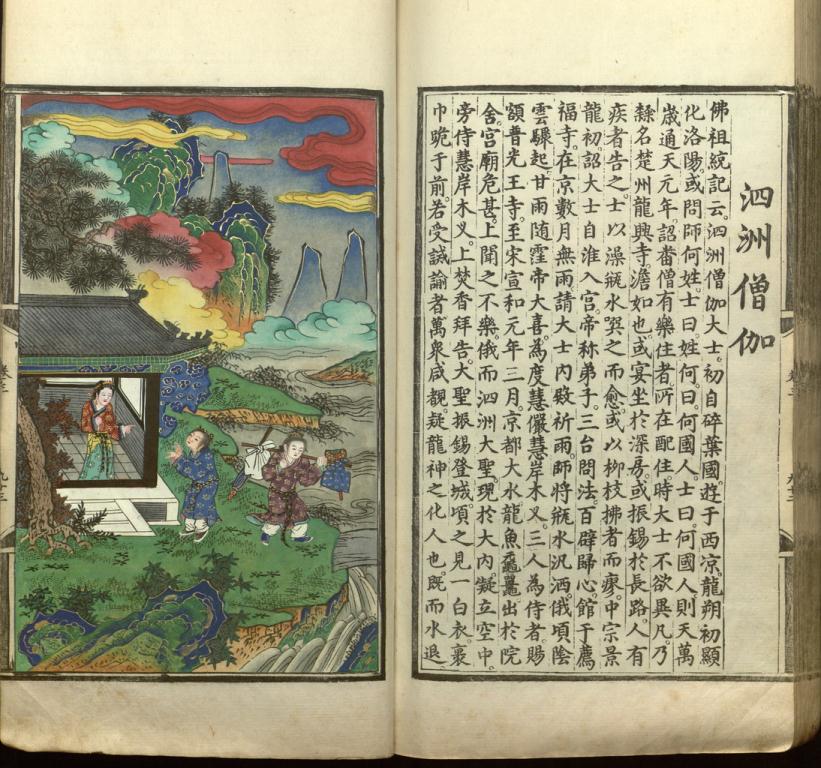 泗洲僧伽
佛祖統記云。泗洲僧伽大士。初自碎葉國。遊于西凉。龍朔初顯
化洛陽。或問師何姓。士曰。姓何。曰。何國人。士曰。何國人。則天萬
歲通天元年。詔番僧有樂住者。所在配住。時大士不欲異凡。乃
隸名楚州龍興寺。澹如也。或宴坐於深房。或振錫於長路。人有
疾者告之。士以澡瓶水噀之而愈。或以柳枝拂者而瘳。中宗景
龍初。詔大士自淮入宮。帝稱弟子。三台問法。百辟歸心。館于薦
福寺。在京數月無雨。請大士內殿祈雨。師將瓶水汎洒。俄頃陰
雲驟起。甘雨随霔。帝大喜。為度慧儼慧岸木叉。三人為侍者。賜
額普光王寺。至宋宣和元年三月。京都大水。龍魚黿鼉出於院
舍。宮廟危甚。上聞之不樂。俄而泗洲大聖。現於大內。凝立空中。
旁侍慧岸木叉。上焚香拜告。大聖振錫登城。頃之見一白衣。裹
巾跪于前。若受誡諭者。萬衆咸覩。疑龍神之化人也。既而水退